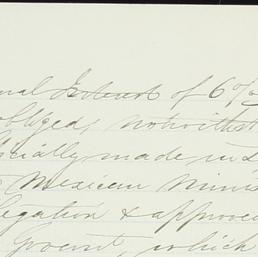 nual Interest of 6 o/o
obliged, notwithst
cially made in
Mexican Minis
legation & approved
Governt, which